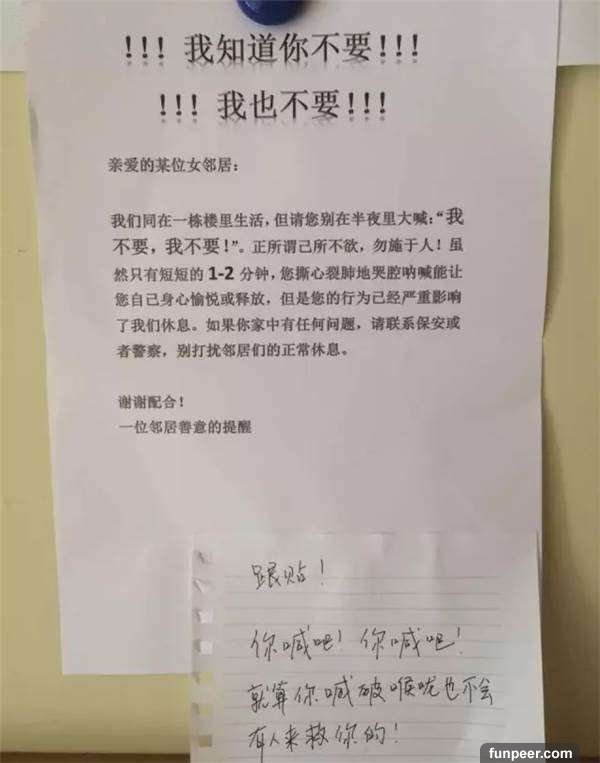 !!! 我知道你不要!!!
!!! 我也不要!!!
亲爱的某位女邻居:
我们同在一栋楼里生活,但请您别在半夜里大喊:“我
不要,我不要!”。正所谓己所不欲,勿施于人!虽
然只有短短的 1-2 分钟,您撕心裂肺地哭腔呐喊能让
您自己身心愉悦或释放,但是您的行为已经严重影响
了我们休息。如果你家中有任何问题,请联系保安或
者警察,别打扰邻居们的正常休息。
谢谢配合!
一位邻居善意的提醒
跟贴!
你喊吧!你喊吧!
就算你喊破喉咙也不会
有人来救你的!
funpeer.com